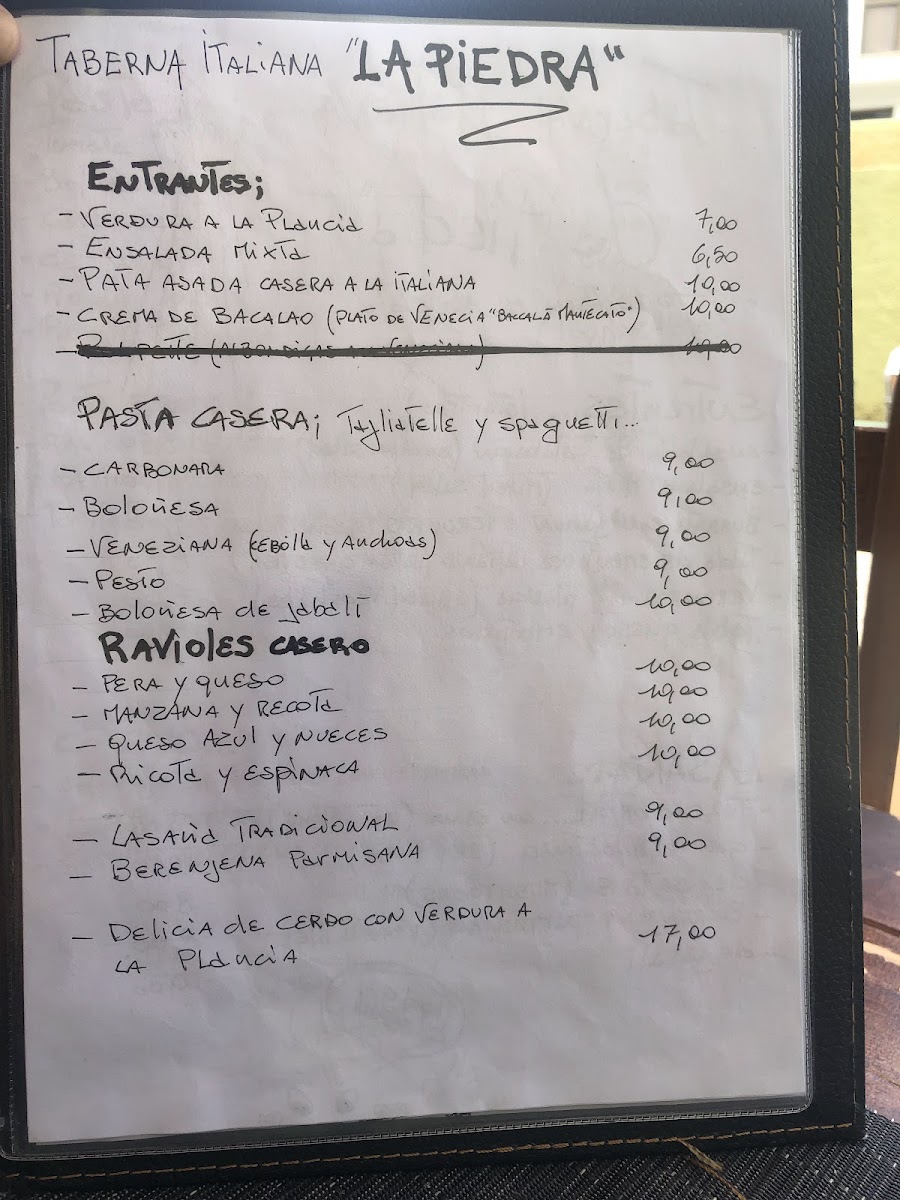 TABERNA ITALIANA "LA PIEDRA"
ENTRANTES;
- VERDURA A LA PLANCIA 7,00
- ENSALADA MIXTA 6,50
- PATA ASADA CASERA A LA ITALIANA 10,00
- CREMA DE BACALAO (PLATO DE VENECIA "BACCALÀ MANTECATO") 10,00
PASTA CASERA; TAGLIATELLE y SPAGUETTI...
- CARBONARA 9,00
- BOLOÑESA 9,00
- VENEZIANA (CEBOLLA y ANCHOAS) 9,00
- PESTO 9,00
- BOLOÑESA de JABALI 10,00
RAVIOLES CASERO
- PERA y QUESO 10,00
- MANZANA y RECOTA 10,00
- QUESO AZUL y NUECES 10,00
- RICOTA y ESPINACA 10,00
- LASAÑA TRADICIONAL 9,00
- BERENJENA PARMISANA 9,00
- DELICIA de CERDO CON VERDURA A
LA PLANCIA 17,00